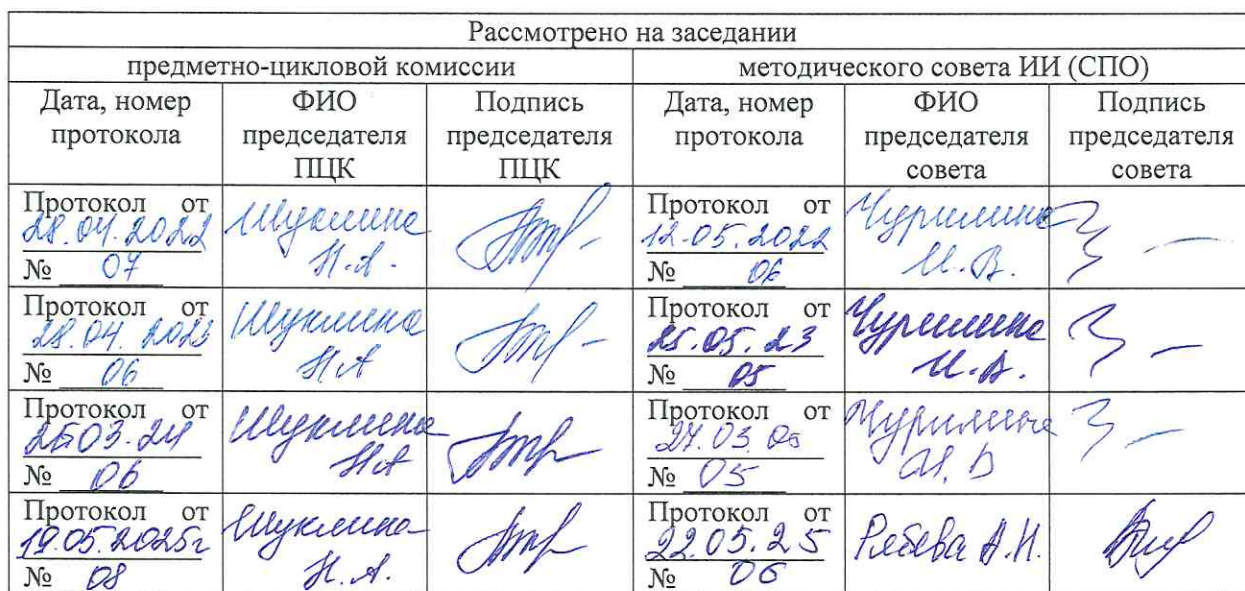 Рассмотрено на заседании
предметно-цикловой комиссии методического совета ИИ (СПО)
Дата, номер протокола ФИО председателя ПЦК Подпись председателя ПЦК Дата, номер протокола ФИО председателя совета Подпись председателя совета
Протокол от 28.04.2022 № 07 Шуклина Н.А. Протокол от 12.05.2022 № 06 Чурилина И.В.
Протокол от 28.04.2023 № 06 Шуклина Н.А Протокол от 25.05.23 № 05 Чурилина И.В.
Протокол от 03.24 № 06 Шуклина Н.А Протокол от 27.03 № 05 Чурилина И.В
Протокол от 19.05.2025г № 08 Шуклина Н.А. Протокол от 22.05.25 № 06 А.Н.